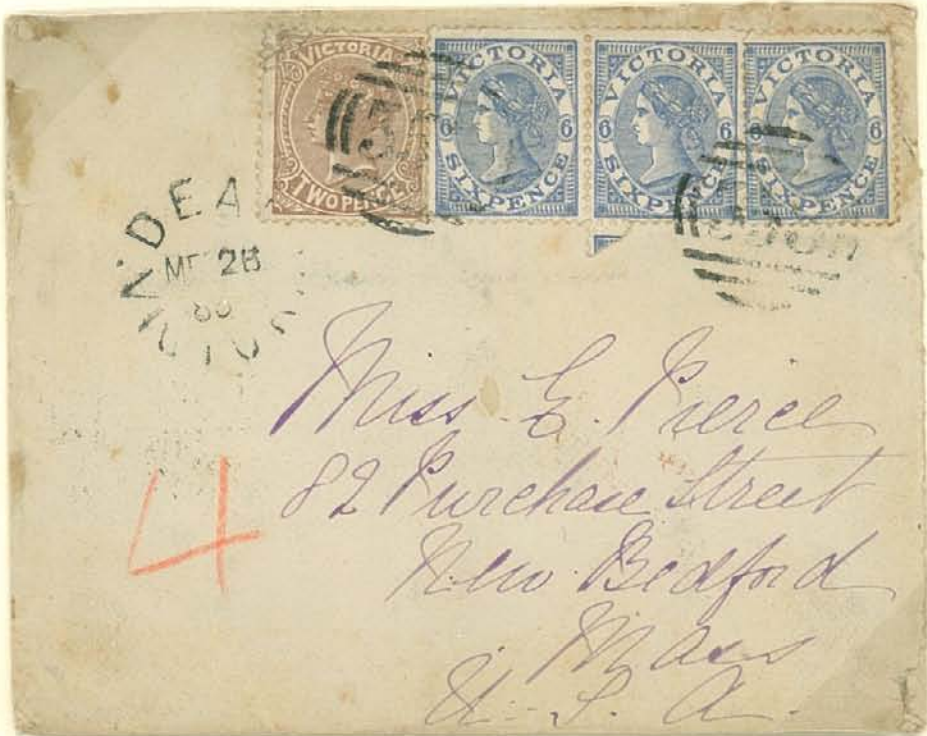 VICTORIA
TWO PENCE
VICTORIA
6 6
SIXPENCE
VICTORIA
6 6
SIXPENCE
VICTORIA
6 6
SIXPENCE
28
Miss E. Pierce
82 Purchase Street
New Bedford
Mass
U. S. A.
4